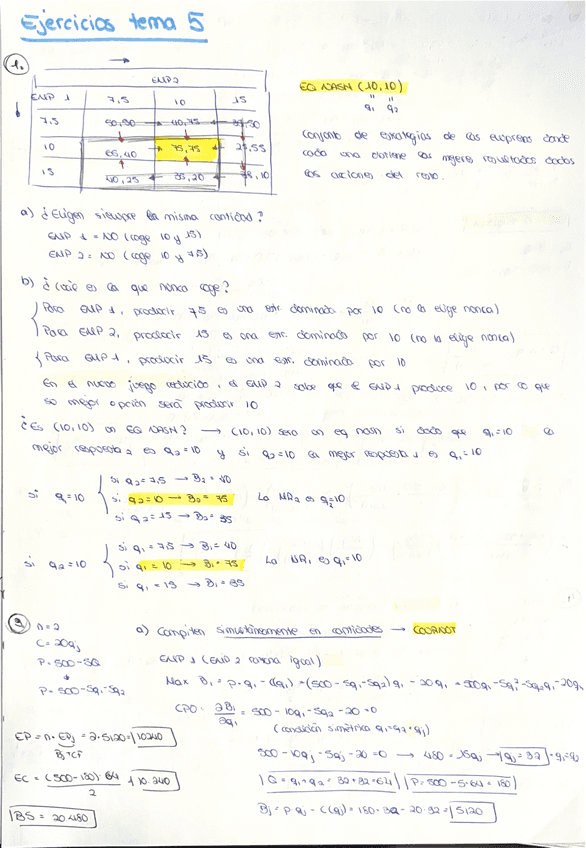 Ejercicios tema 5
1.
EMP 2
EMP 1 7,5 10 15
7,5 50,50 40,75
10 65,40 75,75
15 40,25 35,20
EQ NASH (10,10)
q1 q2
Conjunto de estrategias de las empresas donde
cada una obtiene los mejores resultados dadas
las acciones del resto.
a) ¿Eligen siempre la misma cantidad?
EMP 1 = NO (coge 10 y 15)
EMP 2 = NO (coge 10 y 7,5)
b) ¿Cuál es la que nunca coge?
Para EMP 1, producir 7,5 es una estr. dominada por 10 (no la elige nunca)
Para EMP 2, producir 15 es una estr. dominada por 10 (no la elige nunca)
Para EMP 1, producir 15 es una estr. dominada por 10
En el nuevo juego reducido, la EMP 2 sabe que la EMP 1 produce 10, por lo que
su mejor opción será producir 10
¿Es (10,10) un EQ NASH? → (10,10) sera un eq nash si dado que q1=10 la
mejor respuesta 2 es q2=10 y si q2=10 la mejor respuesta 1 es q1=10
si q1=10
si q2=7,5 → B2= 40
si q2=10 → B2= 75 La MR2 es q2=10
si q2=15 → B2= 35
si q2=10
si q1=7,5 → B1=40
si q1=10 → B1=75 La MR1 es q1=10
si q1=15 → B1=35
3
n=2
C=20qj
P=500-5Q
P=500-5q1-5q2
a) Compiten simultáneamente en cantidades → COURNOT
EMP 1 (EMP 2 razona igual)
Max B1 = P·q1 - C(q1) = (500-5q1-5q2)q1 - 20q1 = 500q1-5q1²-5q2q1-20q1
CPO: ∂B1/∂q1 = 500-10q1-5q2-20=0
(condición simétrica q1=q2=qj)
500-10qj-5qj-20=0 → 480=15qj → qj=32 =q1=q2
Q=q1+q2=32+32=64 P=500-5·64=180
Bj=P·qj-C(qj)=180·32-20·32=5120
EP=n·EPj=2·5120=10240
Bj+CF
EC=(500-180)·64/2=10.240
BS=20.480